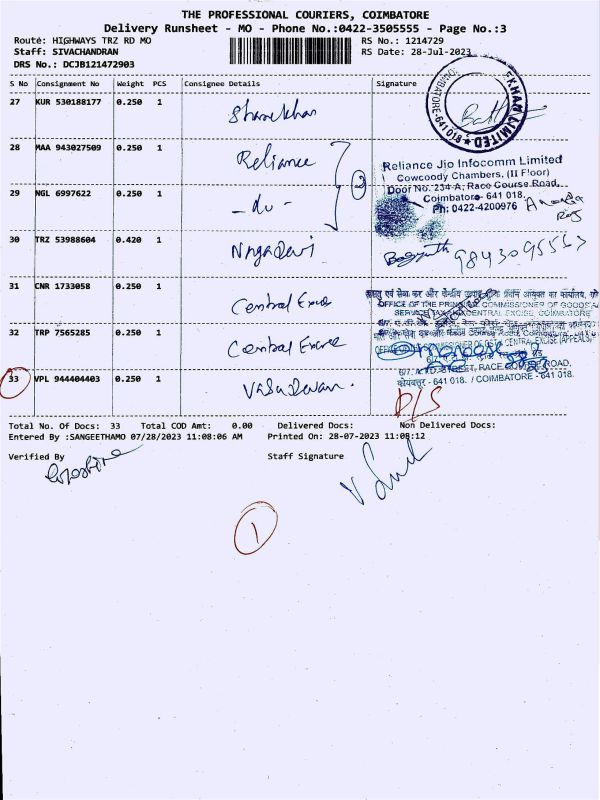 THE PROFESSIONAL COURIERS, COIMBATORE
Delivery Runsheet - MO - Phone No.:0422-3505555 - Page No.:3
Route: HIGHWAYS TRZ RD MO
RS No.: 1214729
Staff: SIVACHANDRAN
RS Date: 28-Jul-2023
DRS No.: DCJB121472903
S No Consignment No Weight PCS Consignee Details Signature
27 KUR 530188177 0.250 1 Sharekhan
KHAN LIMITED
COIMBATORE-641 018
28 MAA 943027509 0.250 1 Reliance
2
Reliance Jio Infocomm Limited
Cowcoody Chambers, (II Floor)
Door No. 234-A, Race Course Road,
Coimbatore- 641 018.
Ph: 0422-4200976
29 NGL 6997622 0.250 1 -do-
30 TRZ 53988604 0.420 1 NagaDevi
9843095563
31 CNR 1733058 0.250 1 Central Excise
OFFICE OF THE PRINCIPAL COMMISSIONER OF GOODS &
SERVICE TAX & CENTRAL EXCISE, COIMBATORE
32 TRP 7565285 0.250 1 Central Excise
6/7, A.T.D. STREET, RACE COURSE ROAD,
कोयंबतूर - 641 018. / COIMBATORE - 641 018.
33 VPL 944404403 0.250 1 Vasudevan.
D/S
Total No. Of Docs: 33 Total COD Amt: 0.00 Delivered Docs: Non Delivered Docs:
Entered By :SANGEETHAMO 07/28/2023 11:08:06 AM Printed On: 28-07-2023 11:08:12
Verified By Staff Signature
1